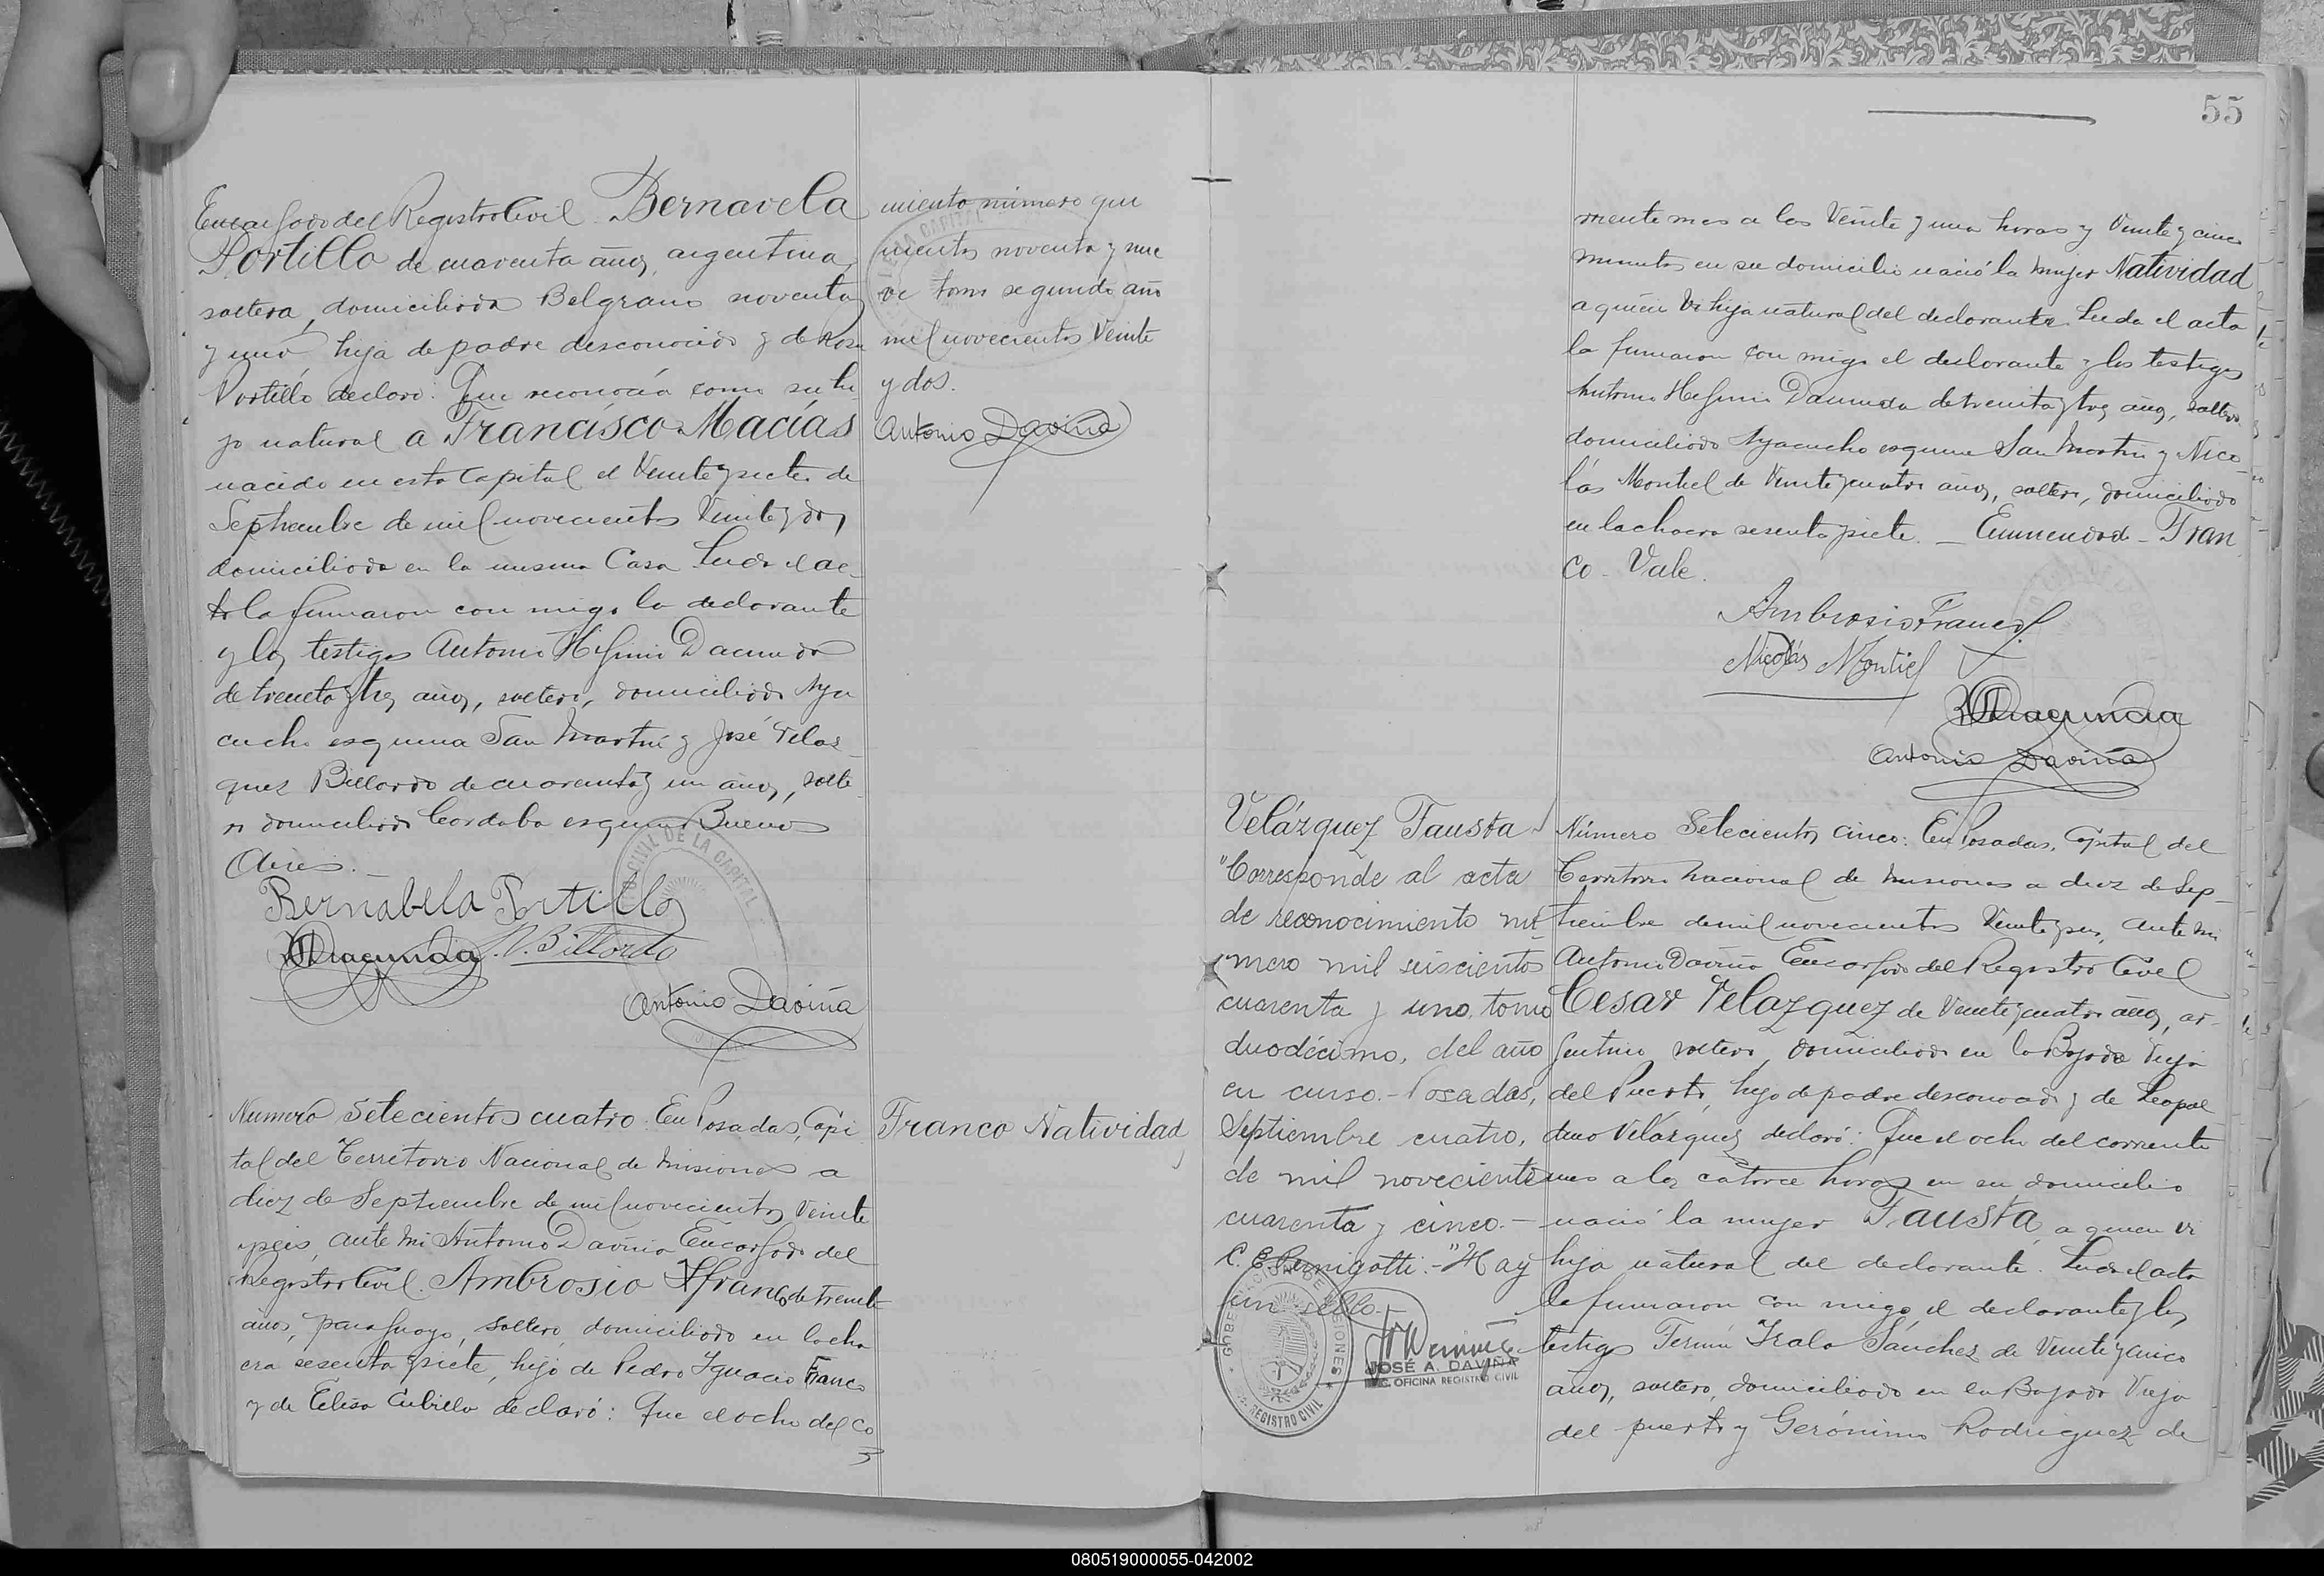 Encargado del Registro Civil Bernavela
Portillo de cuarenta años, argentina,
soltera, domiciliada Belgrano noventa
y uno, hija de padre desconocido y de Rosa
Portillo declaró: Que reconocía como su hi
jo natural a Francisco Macías
nacido en esta Capital el Veinte y siete de
Septiembre de mil novecientos Veinte y dos,
domiciliado en la misma Casa Leida el ac-
ta la firmaron con migo la declarante
y los testigos Antonio Higinio Dacunda
de treinta y tres años, soltero, domiciliado Aya
cucho esquina San Martín y José Velas
quez Billordo de cuarenta y un años, solte
ro domiciliado Cordoba esquina Buenos
Aires.
Bernabela Portillo
HDacunda J.V.Billordo
Antonio Daviña
miento número qui
nientos noventa y nue
ve tomo segundo año
mil novecientos Veinte
y dos.
Antonio Daviña
Numero Setecientos cuatro: En Posadas, Capi
tal del Territorio Nacional de Misiones a
diez de Septiembre de mil novecientos Veinte
y seis, ante mi Antonio Daviña Encargado del
Registro Civil. Ambrosio Franco de treinta
años, paraguayo, soltero, domiciliado en la cha
cra sesenta y siete, hijo de Pedro Ignacio Franco
y de Elisa Cubilla declaró: Que el ocho del co
Franco Natividad
55
rriente mes a las Veinte y una horas y Veinte y cinco
minutos en su domicilio nació la mujer Natividad
a quien vi hija natural del declarante. Leida el acta
la firmaron con migo el declarante y los testigos
Antonio Higinio Dacunda de treinta y tres años, soltero
domiciliado Ayacucho esquina San Martin y Nico
lás Montiel de Veinte y cuatro años, soltero, domiciliado
en la chacra sesenta y siete. _ Enmendado - Fran
co - Vale.
Ambrosio Franco
Nicolás Montiel
HDacunda
Antonio Daviña
Velázquez Fausta
"Corresponde al acta
de reconocimiento nú-
mero mil seiscientos
cuarenta y uno, tomo
duodécimo, del año
en curso.- Posadas,
Septiembre cuatro,
de mil novecientos
cuarenta y cinco.-
C. E. Pernigotti.-" Hay
un sello.-
JOSÉ A. DAVIÑA
OFICINA REGISTRO CIVIL
Número Setecientos cinco: En Posadas, Capital del
Territorio Nacional de Misiones a diez de Sep-
tiembre de mil novecientos Veinte y seis, ante mi
Antonio Daviña Encargado del Registro Civil
Cesar Velazquez de Veinte y cuatro años, ar-
gentino, soltero, domiciliado en la Bajada Vieja
del Puerto, hijo de padre desconocido y de Leopol
dino Velázquez declaró: Que el ocho del corriente
mes a las catorce horas en su domicilio
nació la mujer Fausta, a quien vi
hija natural del declarante. Leida el acta
la firmaron con migo el declarante y los
testigos Fermin Irala Sánchez de Veinte y cinco
años, soltero, domiciliado en la Bajada Vieja
del puerto y Gerónimo Rodriguez de
080519000055-042002